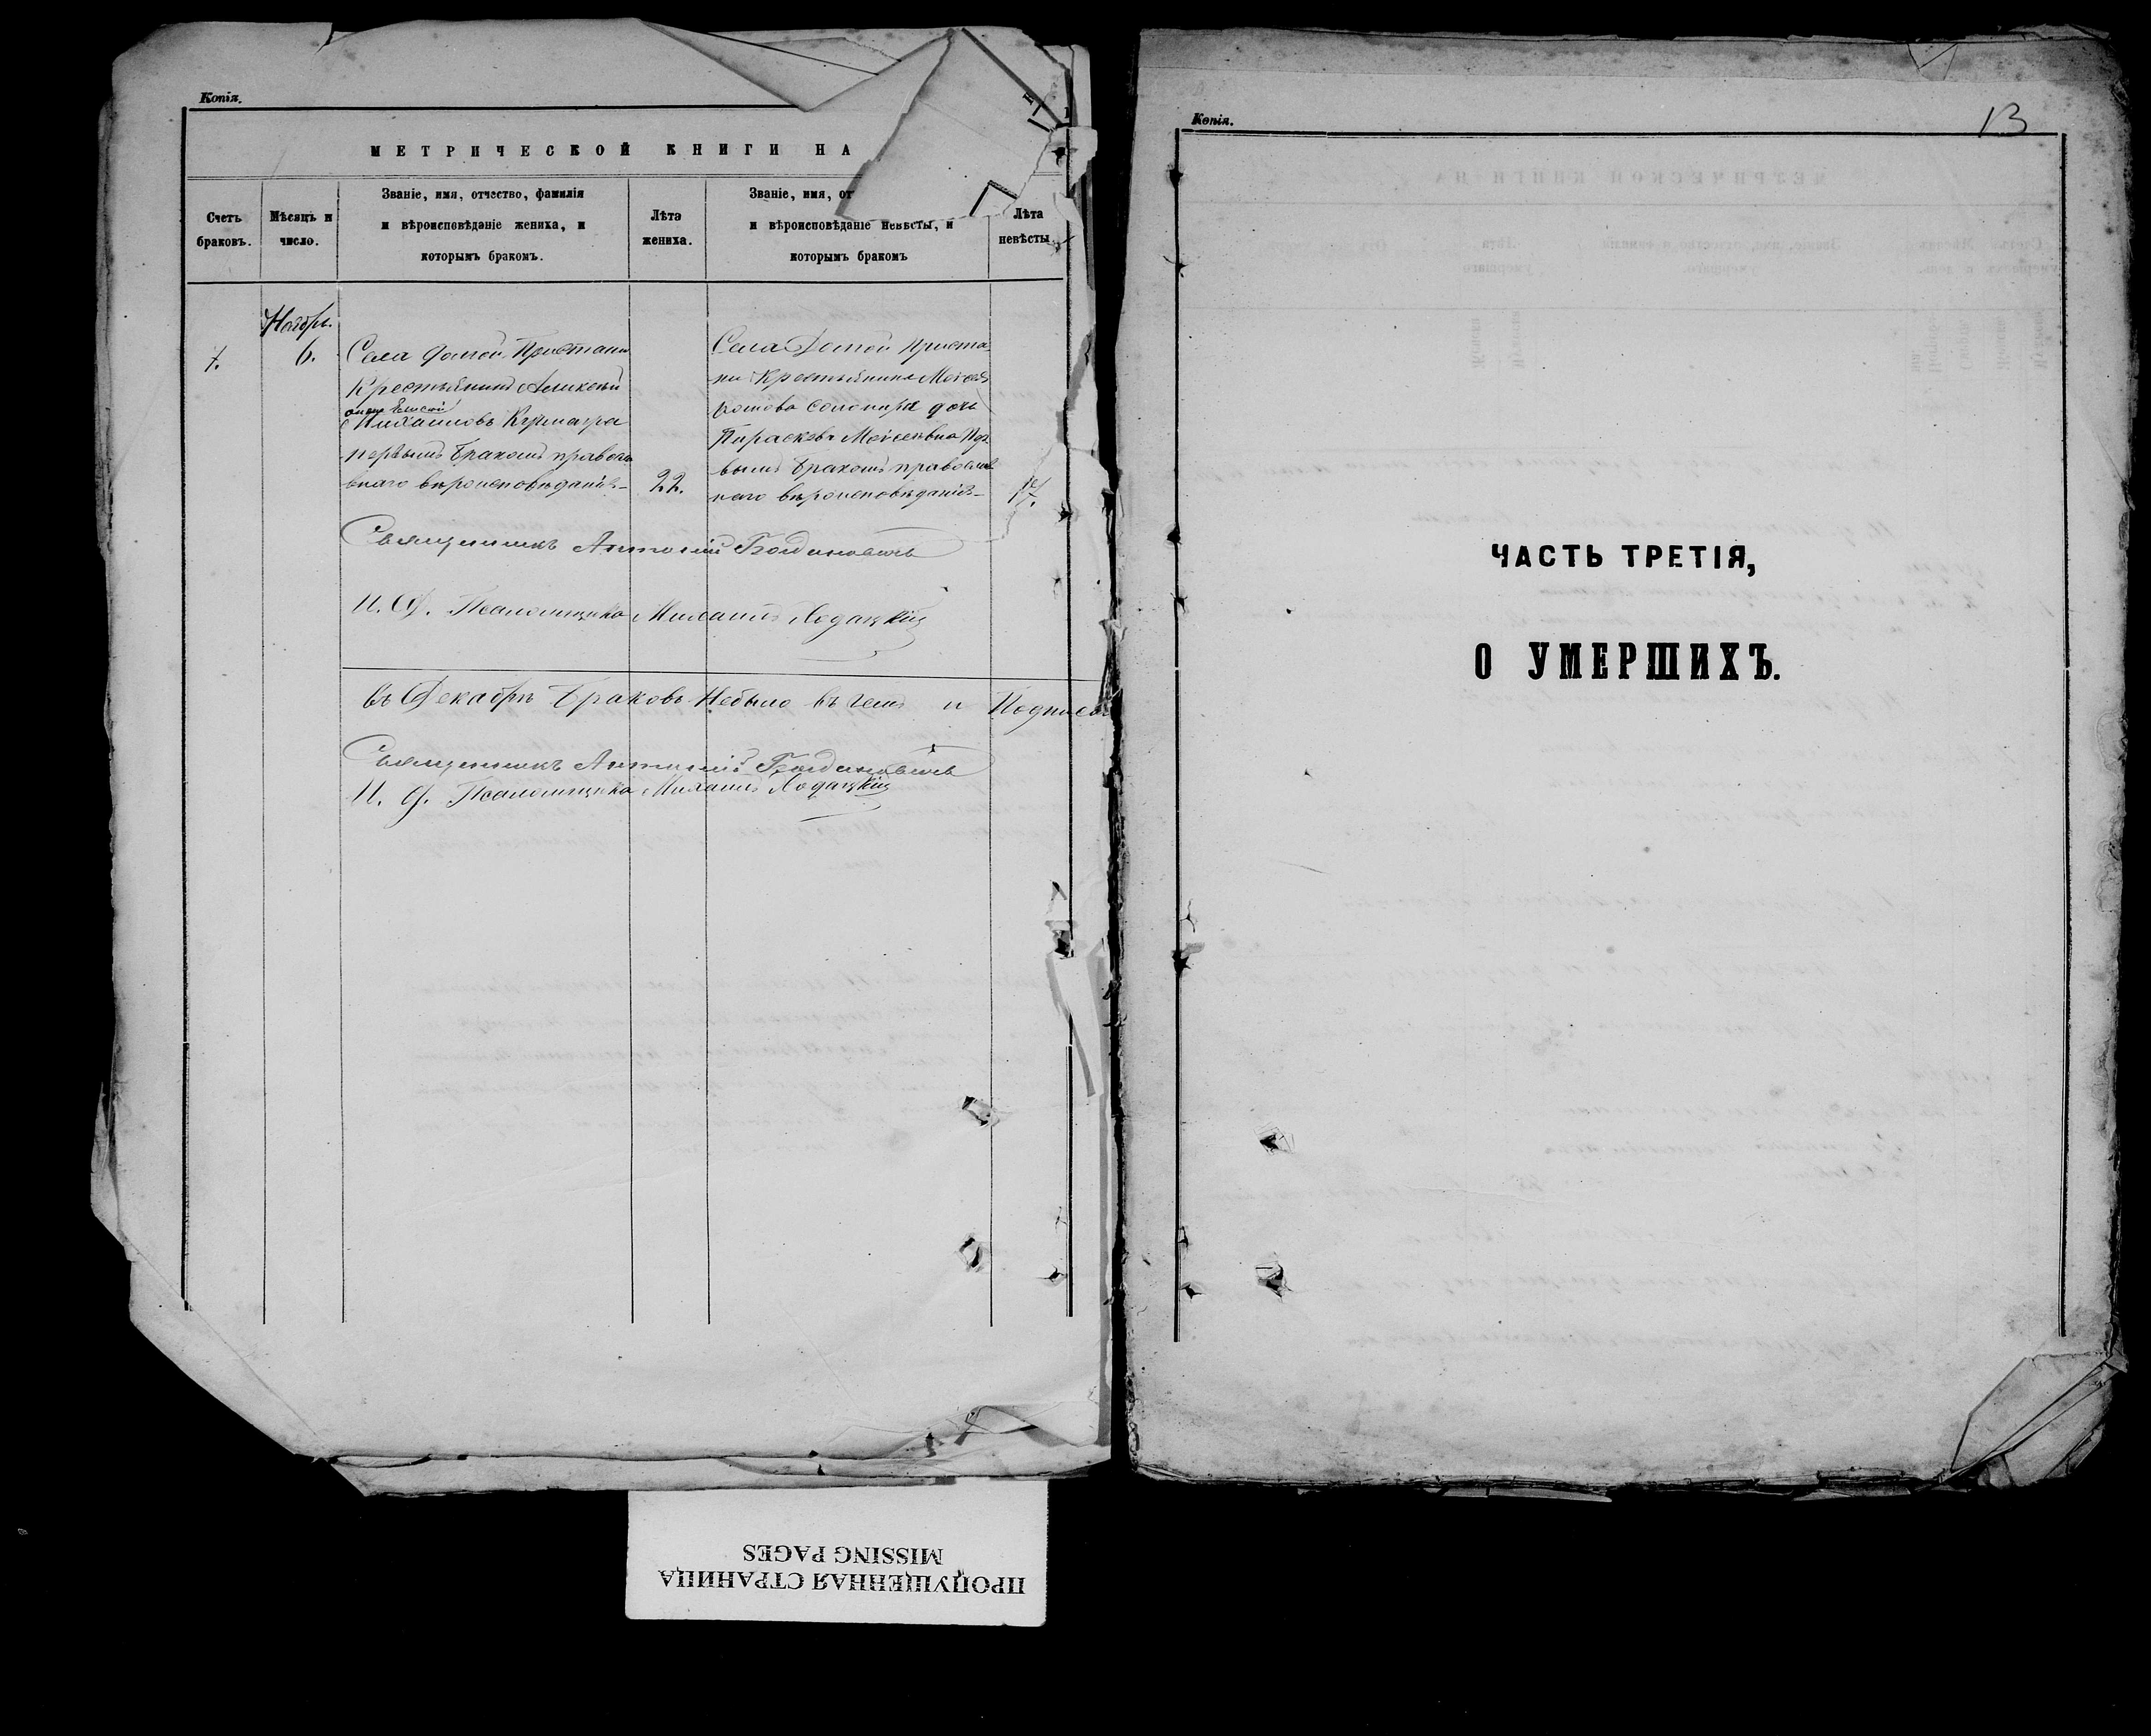 Копія.
МЕТРИЧЕСКОЙ КНИГИ НА
Счетъ браковъ.
Мѣсяцъ и число.
Званіе, имя, отчество, фамилія
и вѣроисповѣданіе жениха, и
которымъ бракомъ.
Лѣта жениха.
Званіе, имя, от
и вѣроисповѣданіе невѣсты, и
которымъ бракомъ
Лѣта невѣсты
Ноябрь.
7.
6.
Села Долгой Пристани
Крестьянинъ Алексѣй
Михаиловъ
первымъ бракомъ правосла
внаго вѣроисповѣданія
22.
Села Долгой Приста
ни Крестьянина Моисея
дочь
Параскева Моисеевна пер
вымъ бракомъ православ
наго вѣроисповѣданія
17.
Священникъ Антоній
И. Д. Псаломщика Михаилъ Лодацкій
Въ Декабрѣ Браковъ Небыло въ чемъ и Подписа
Священникъ Антоній
И. Д. Псаломщика Михаилъ Лодацкій
Копія.
13
ЧАСТЬ ТРЕТІЯ,
О УМЕРШИХЪ.
ПРОПУЩЕННАЯ СТРАНИЦА
MISSING PAGES